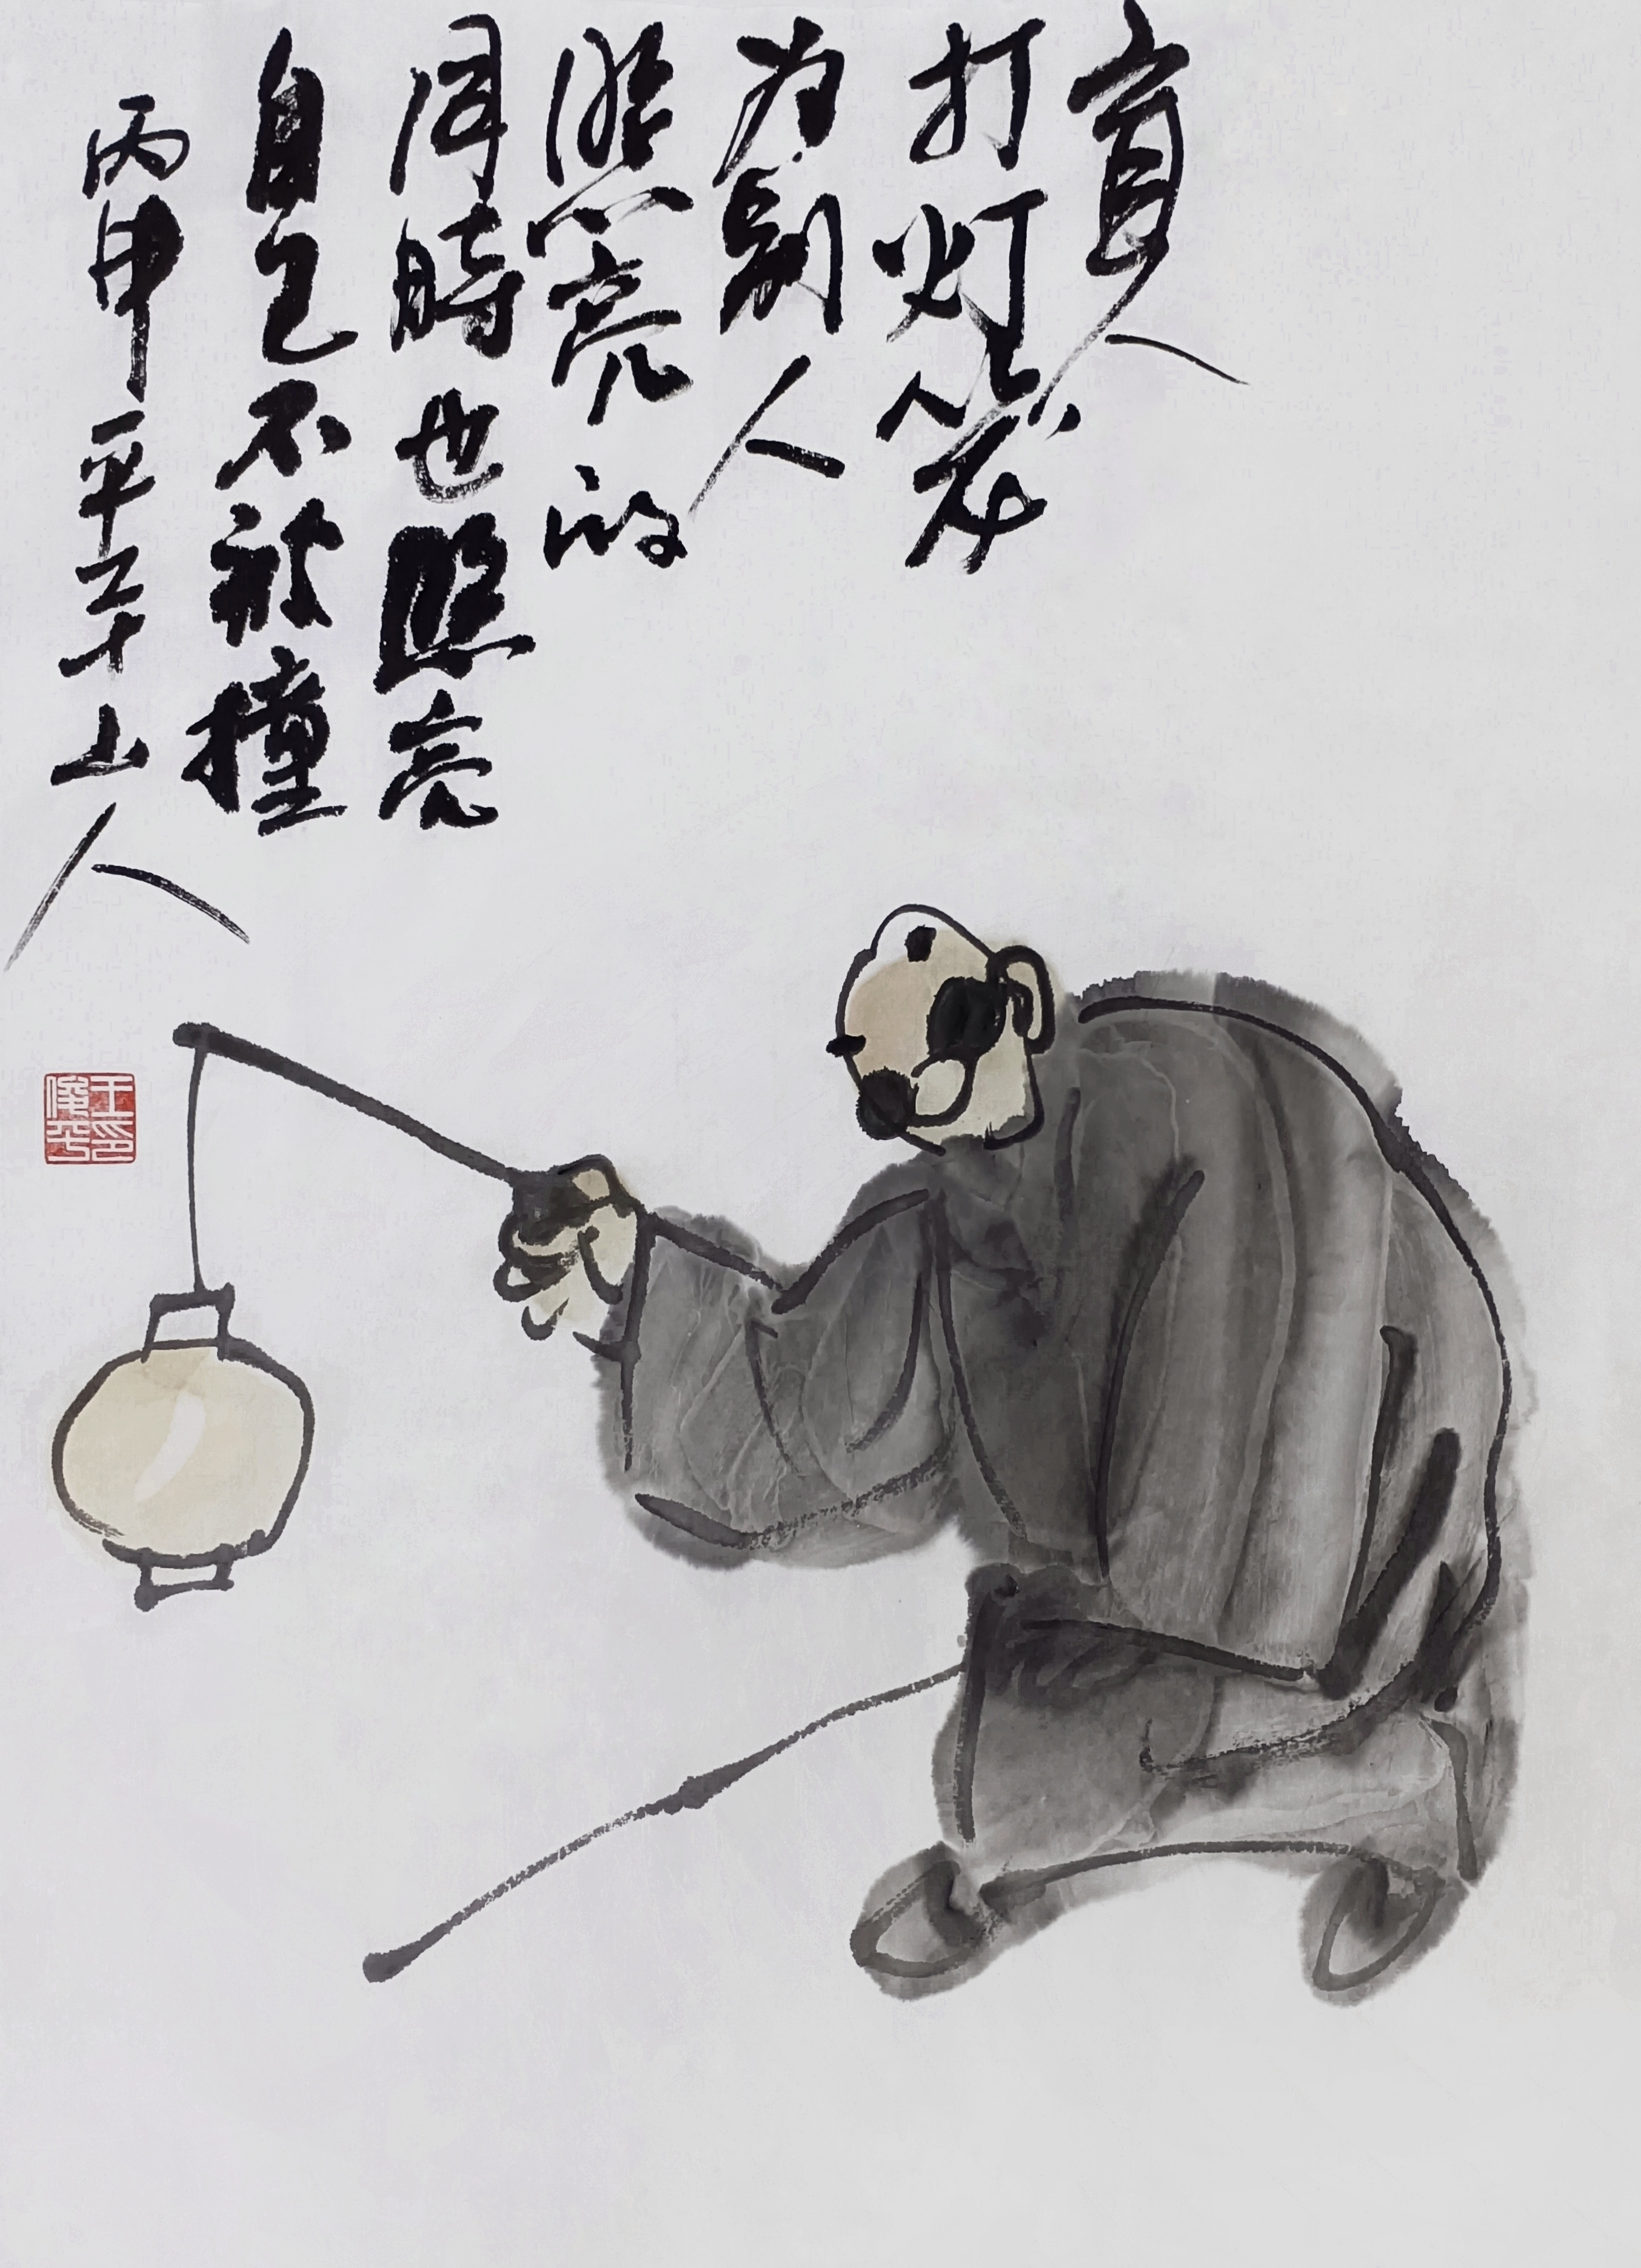 盲人
打灯笼
为别人
照亮的
同時也照亮
自己不被撞
丙申平山人
王印俊